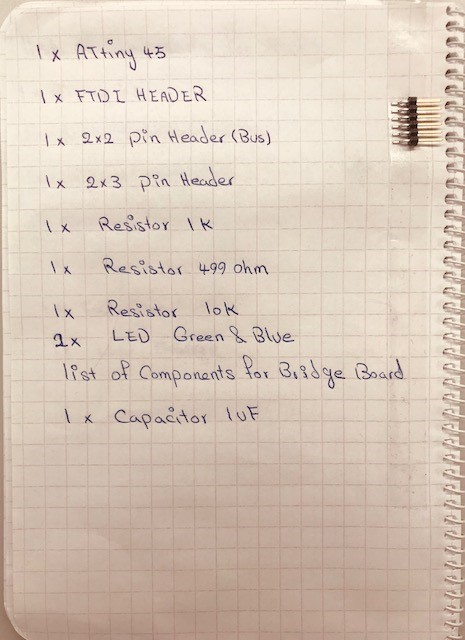 1 x ATtiny 45
1 x FTDI HEADER
1 x 2x2 pin Header (Bus)
1x 2x3 pin Header
1 x Resistor 1K
1x Resistor 499 ohm
1x Resistor 10K
1x LED Green & Blue
list of Components for Bridge Board
1 x Capacitor 1uF